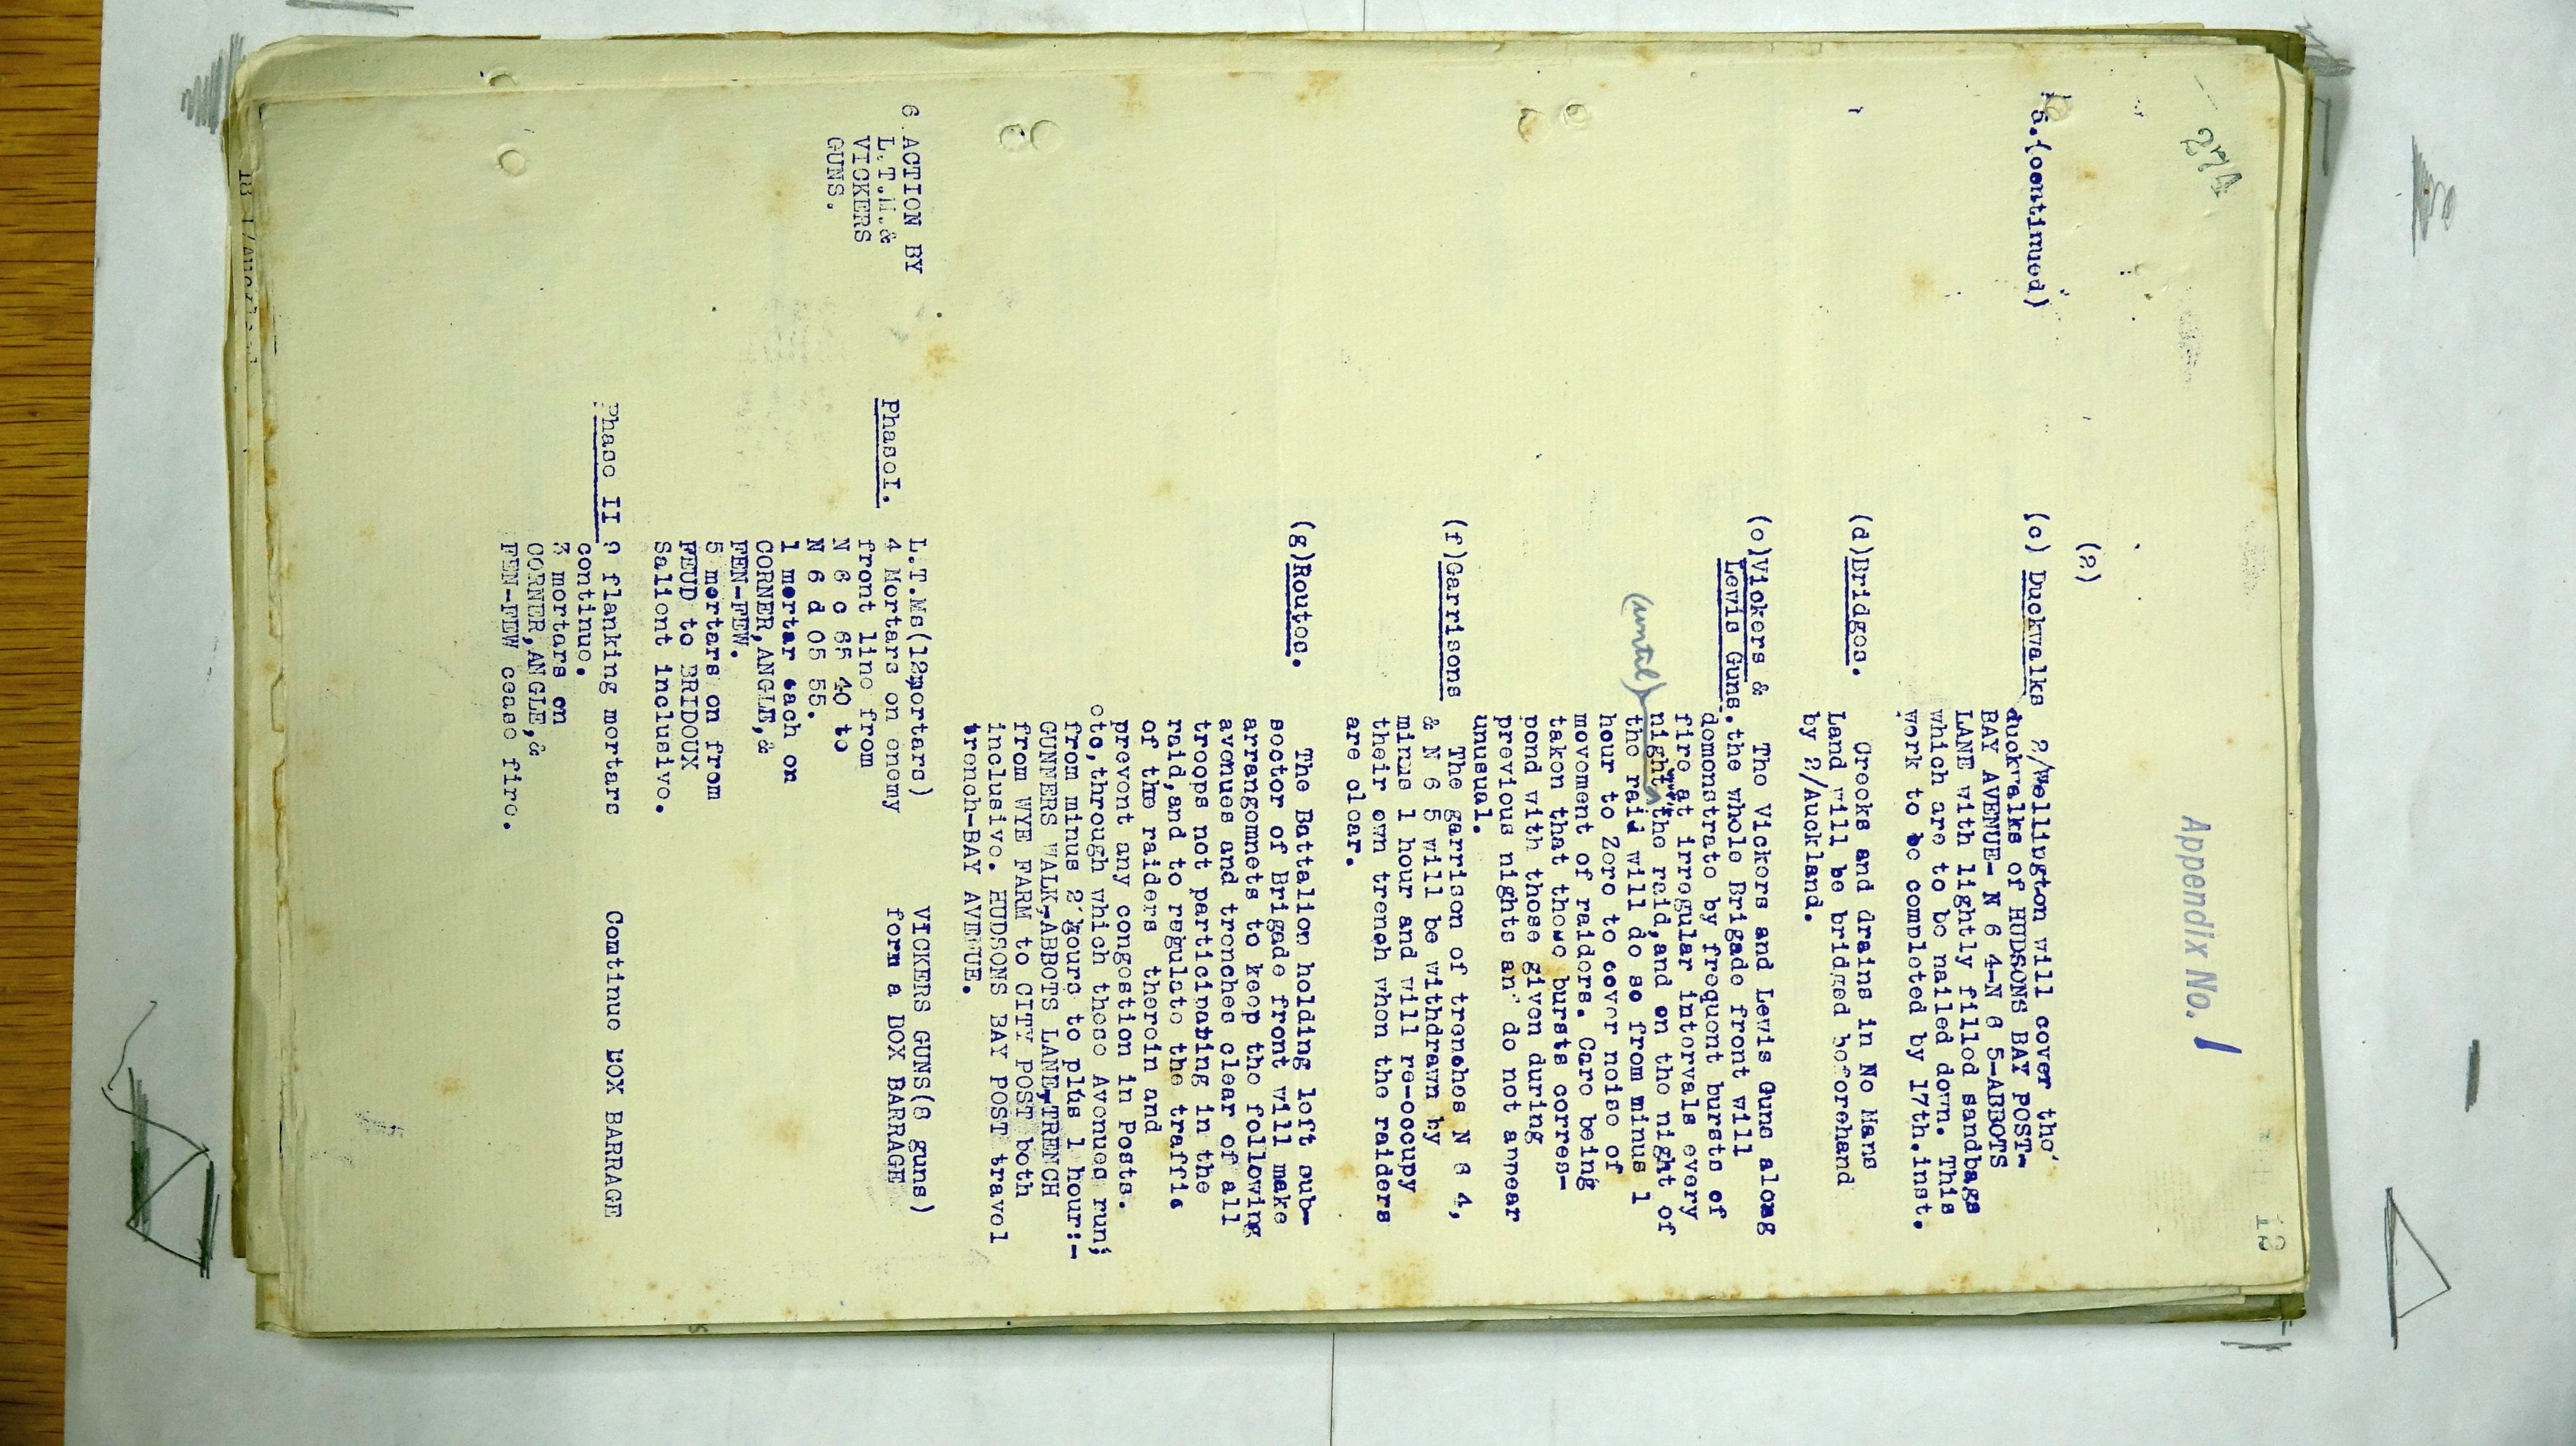 274
12
Appendix No. 1
(2)
5.(continued)
(c) Duckwalks 2/Wellington will cover the
duckwalks of HUDSONS BAY POST-
BAY AVENUE- N 6 4-N 6 5-ABBOTS
LANE with lightly filled sandbags
which are to be nailed down. This
work to be completed by 17th.inst.
(d)Bridges. Creeks and drains in No Mans
Land will be bridged beforehand
by 2/Auckland.
(e)Vickers & The Vickers and Lewis Guns along
Lewis Guns. the whole Brigade front will
demonstrate by frequent bursts of
fire at irregular intervals every
night the raid,and on the night of
(until)
the raid will do so from minus 1
hour to Zero to cover noise of
movement of raiders. Care being
taken that those bursts corres-
pond with those given during
previous nights an' do not appear
unusual.
(f)Garrisons The garrison of trenches N 6 4,
& N 6 5 will be withdrawn by
minus 1 hour and will re-occupy
their own trench when the raiders
are clear.
(g)Routes. The Battalion holding left sub-
sector of Brigade front will make
arrangomnets to keep the following
avenues and trenches clear of all
troops not participating in the
raid,and to regulate the traffic
of the raiders therein and
prevent any congestion in Posts.
etc,through which these Avenues run;
from minus 2 hours to plus 1 hour:-
GUNNERS WALK-ABBOTS LANE-TRENCH
from WYE FARM to CITY POST both
inclusive. HUDSONS BAY POST travel
trench-BAY AVENUE.
6 ACTION BY
L.T.M.&
VICKERS
GUNS.
L.T.Ms(12mortars) VICKERS GUNS(8 guns)
PhaseI. 4 Mortars on enemy form a BOX BARRAGE
front line from
N 6 c 65 40 to
N 6 d 05 55.
1 mortar each on
CORNER,ANGLE,&
FEN-FEW.
5 mortars on from
FEUD to BRIDOUX
Salient inclusive.
Phase II 9 flanking mortars Continue BOX BARRAGE
continue.
3 mortars on
CORNER,ANGLE,&
FEN-FEW cease fire.